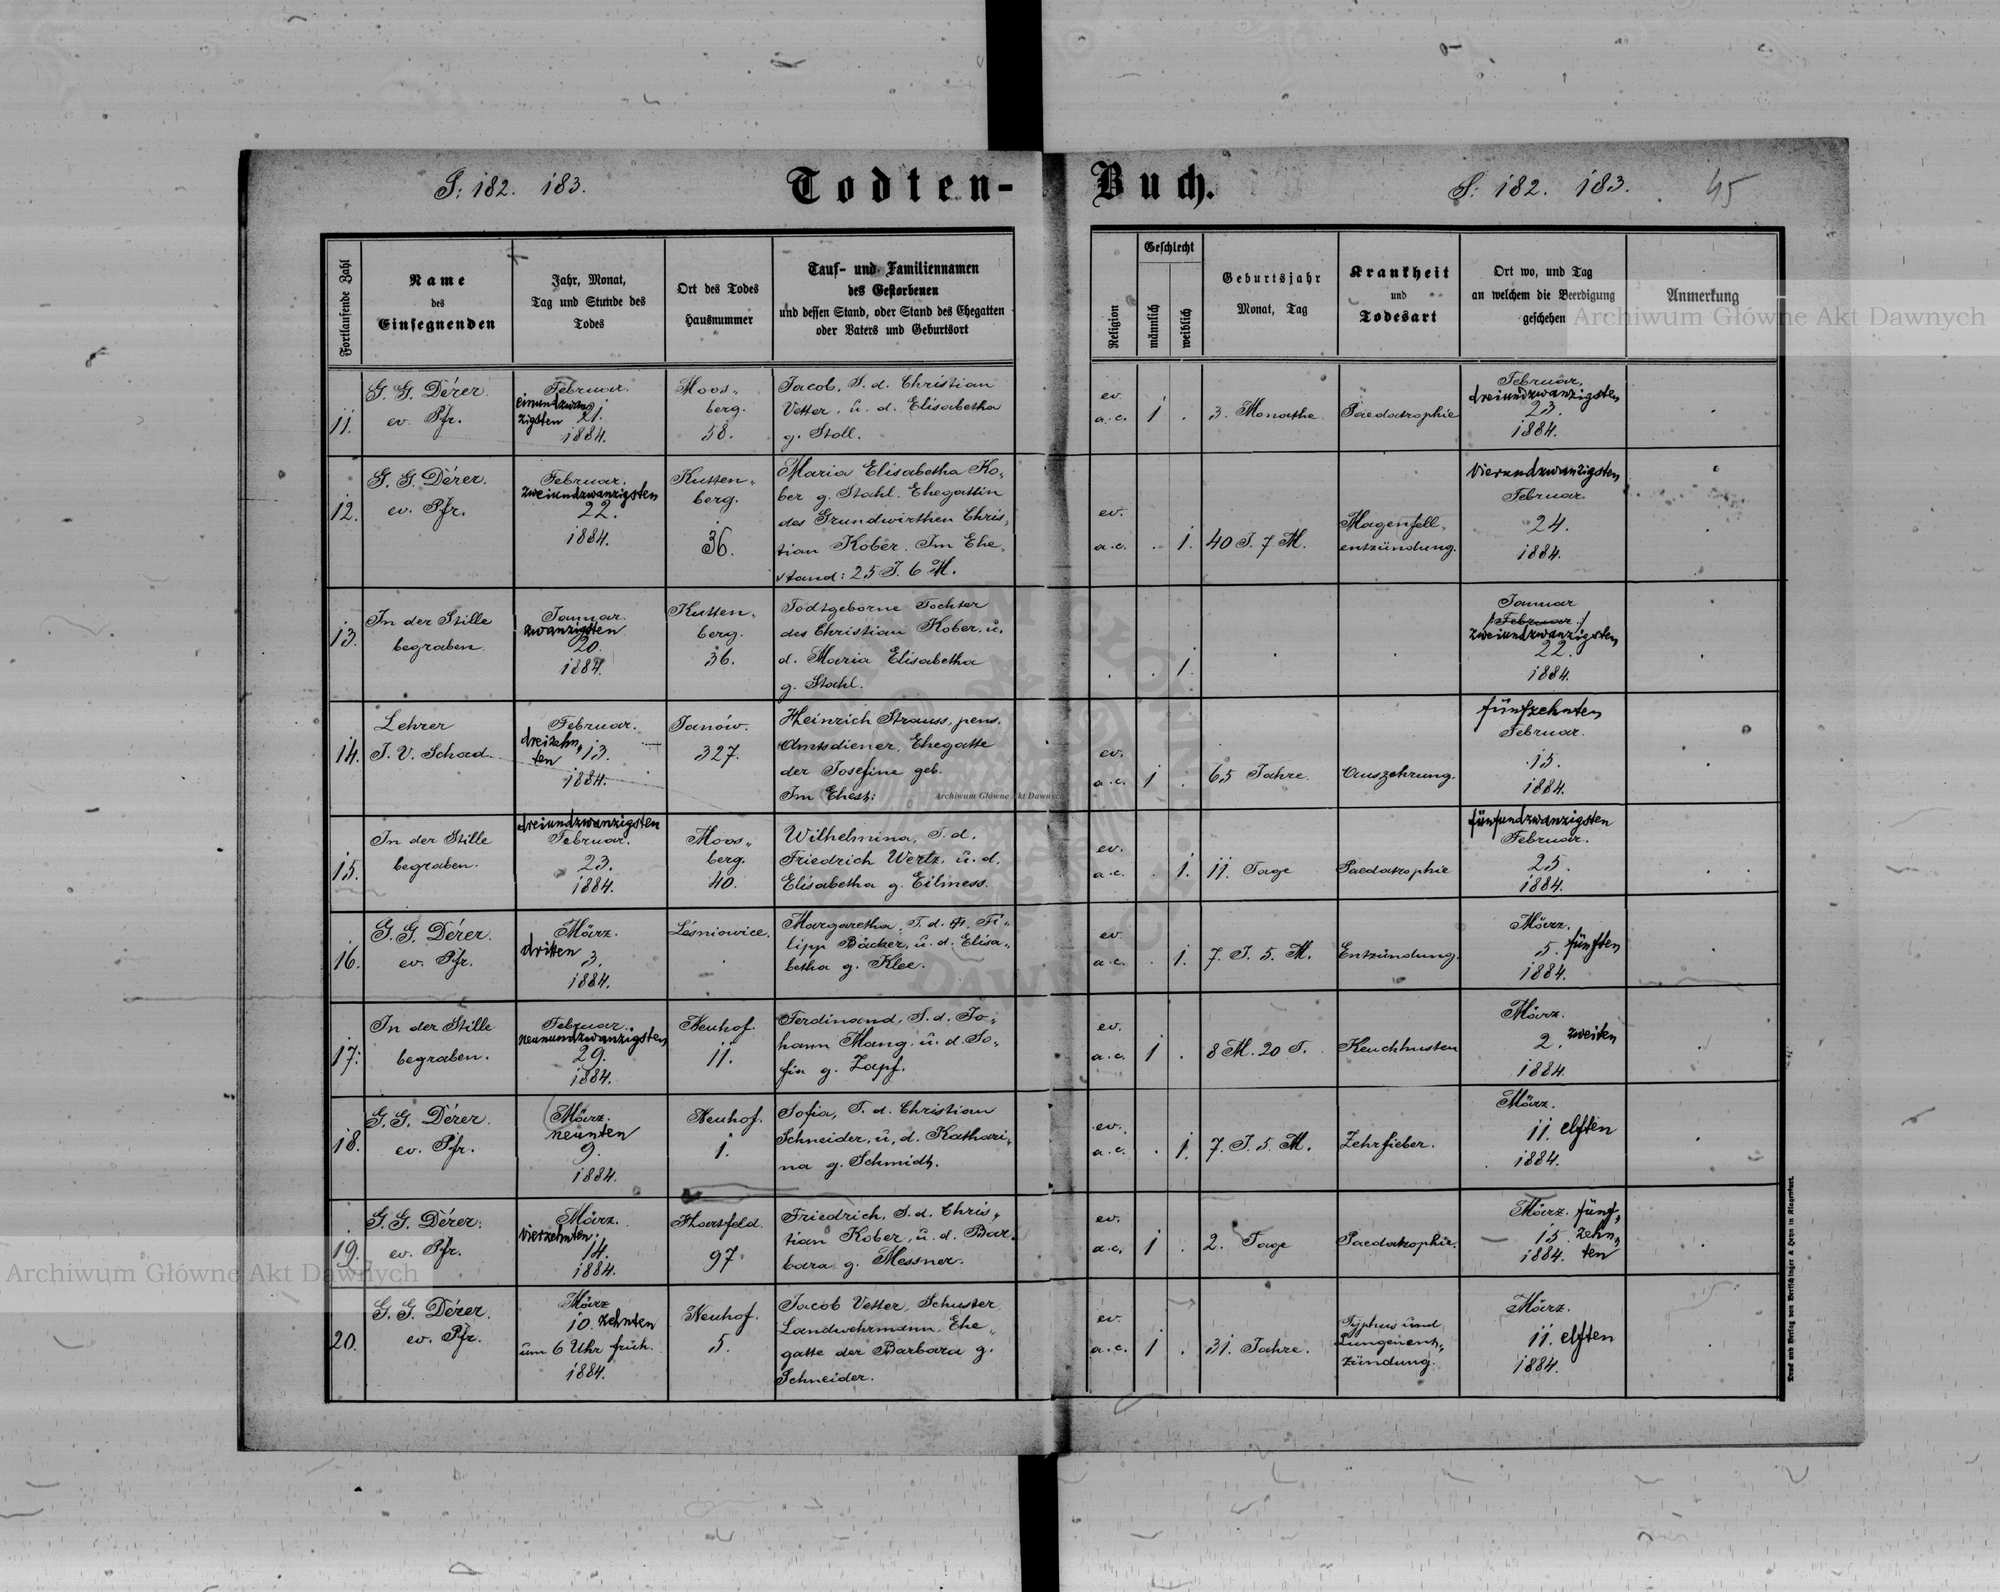 S: 182. 183.
Todten-
Buch.
S: 182. 183.
45
Fortlaufende Zahl
Name
des
Einsegnenden
Jahr, Monat,
Tag und Stunde des
Todes
Ort des Todes
Hausnummer
Tauf- und Familiennamen
des Gestorbenen
und dessen Stand, oder Stand des Ehegatten
oder Vaters und Geburtsort
Religion
Geschlecht
männlich
weiblich
Geburtsjahr
Monat, Tag
Krankheit
und
Todesart
Ort wo, und Tag
an welchem die Beerdigung
geschehen
Anmerkung
11.
G. G. Dérer.
ev. Pfr.
Februar.
einundzwan
zigsten 21.
1884.
Moos„
berg.
58.
Jacob, S. d. Christian
Vetter, u. d. Elisabetha
g. Stoll.
ev.
a. c.
1
.
3. Monathe.
Paedatrophie
Februar,
dreiundzwanzigsten
23.
1884.
.
12.
G. G. Dérer.
ev. Pfr.
Februar.
zweiundzwanzigsten
22.
1884.
Kutten„
berg.
36.
Maria Elisabetha Ko„
ber g. Stahl. Ehegattin
des Grundwirthen Chris„
tian Kober. Im Ehe„
stand: 25 J. 6 M.
ev.
a. c.
.
1.
40 J. 7 M.
Magenfell„
entzündung.
vierundzwanzigsten
Februar.
24.
1884.
.
13.
In der Stille
begraben.
Januar.
zwanzigsten
20.
1884.
Kutten„
berg.
36.
Todtgeborne Tochter
des Christian Kober, u.
d. Maria Elisabetha
g. Stahl.
.
.
1.
.
.
Januar
/Februar/
zweiundzwanzigsten
22.
1884.
.
14.
Lehrer
J. V. Schad.
Februar.
dreizehn„
ten 13.
1884.
Janów.
327.
Heinrich Strauss, pens.
Amtsdiener, Ehegatte
der Josefine geb.
Im Ehest:
ev.
a. c.
1
.
65 Jahre.
Auszehrung.
fünfzehnten
Februar.
15.
1884.
.
15.
In der Stille
begraben.
dreiundzwanzigsten
Februar.
23.
1884.
Moos„
berg.
40.
Wilhelmina, T. d.
Friedrich Wertz, u. d.
Elisabetha g. Eilmess.
ev.
a. c.
.
1.
11. Tage
Paedatrophie
fünfundzwanzigsten
Februar.
25.
1884.
.
16.
G. G. Dérer.
ev. Pfr.
März.
dritten
3.
1884.
Leśniowice.
.
Margaretha, T. d. Fi„
lipp Bäcker, u. d. Elisa„
betha g. Klee.
ev.
a. c.
.
1.
7. J. 5. M.
Entzündung.
März.
5. fünften
1884.
.
17.
In der Stille
begraben.
Februar.
neunundzwanzigsten
29.
1884.
Neuhof.
11.
Ferdinand, S. d. Jo„
hann Mang, u. d. So„
fia g. Zapf.
ev.
a. c.
1
.
8 M. 20 T.
Keuchhusten
März.
2. zweiten
1884.
.
18.
G. G. Dérer.
ev. Pfr.
März.
neunten
9.
1884.
Neuhof.
1.
Sofia, T. d. Christian
Schneider, u. d. Kathari„
na g. Schmidt.
ev.
a. c.
.
1.
7. J. 5. M.
Zehrfieber.
März.
11. elften
1884.
.
19.
G. G. Dérer.
ev. Pfr.
März.
vierzehnten.
14.
1884.
Hartfeld.
97
Friedrich, S. d. Chris„
tian Kober, u. d. Bar„
bara g. Messner.
ev.
a. c.
1
.
2. Tage
Paedatrophie.
März. fünf„
15. zehn„
1884. ten
.
20.
G. G. Dérer.
ev. Pfr.
März
10. zehnten
um 6 Uhr früh.
1884.
Neuhof.
5.
Jacob Vetter, Schuster
Landwehrmann, Ehe„
gatte der Barbara g.
Schneider.
ev.
a. c.
1
.
31. Jahre.
Typhus und
Lungenent„
zündung.
März.
11. elften
1884.
.
Druck und Verlag von Bertschinger & Heyn in Klagenfurt.
Archiwum Główne Akt Dawnych
Archiwum Główne Akt Dawnych
Archiwum Główne Akt Dawnych